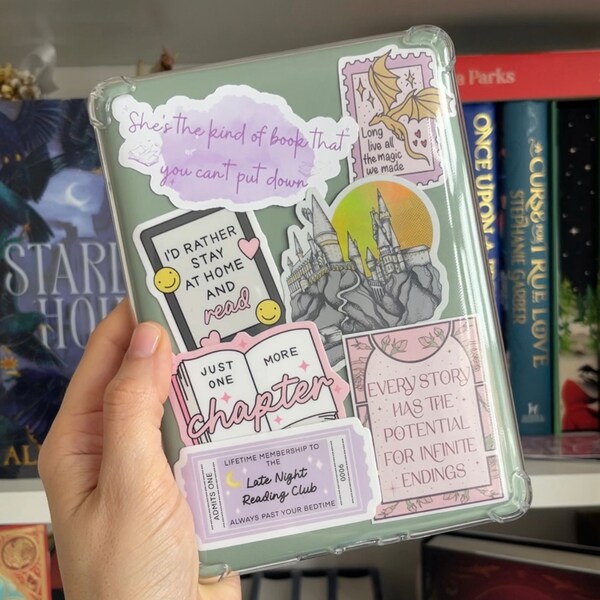 She's the kind of book that
you can't put down
Long
live all
the magic
we made
I'D RATHER
STAY
AT HOME
AND
read
JUST
ONE
MORE
chapter
EVERY STORY
HAS THE
POTENTIAL
FOR INFINITE
ENDINGS
ADMITS ONE
LIFETIME MEMBERSHIP TO
THE
Late Night
Reading Club
ALWAYS PAST YOUR BEDTIME
0006
Parks
ONCE UPON A
A CURSE FOR TRUE LOVE
STEPHANIE GARBER